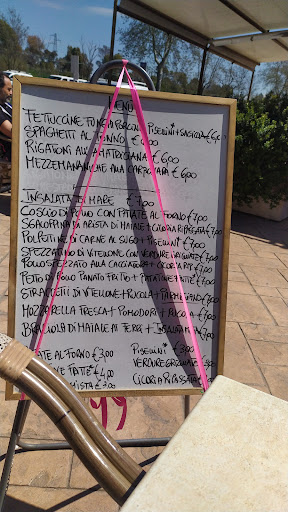 MENÙ
FETTUCCINE FUNGHI PORCINI PISELLINI*+SALSICCIA €6,00
SPAGHETTI AL TONNO €6,00
RIGATONI ALL'AMATRICIANA €6,00
MEZZEMANICHE ALLA CARBONARA €6,00
INSALATA DI MARE €7,00
COSCIO DI POLLO CON PATATE AL FORNO €7,00
DI ARISTA DI MAIALE + CICORIA RIPASSATA €7,00
POLPETTINE DI CARNE AL SUGO + PISELLINI* €7,00
SPEZZATINO DI VITELLONE CON VERDURE GRIGLIATE €7,00
POLLO SPEZZATO ALLA CACCIATORA + CICORIA RIP
PETTO DI POLLO PANATO FRITTO + PATATINE FRITTE €7,00
STRACCETTI DI VITELLONE + RUCOLA + PARMIGIANO €7,00
MOZZARELLA FRESCA + POMODORI + RUCOLA €7,00
BRACIOLA DI MAIALE AI FERRI + INSALATA €7,00
ATE AL FORNO €3,00 PISELLINI* €3,00
NE FRITTE €4,00 VERDURE GRIGLIATE 3,00
MISTA €3,00 CICORIA RIPASSATA €3,00